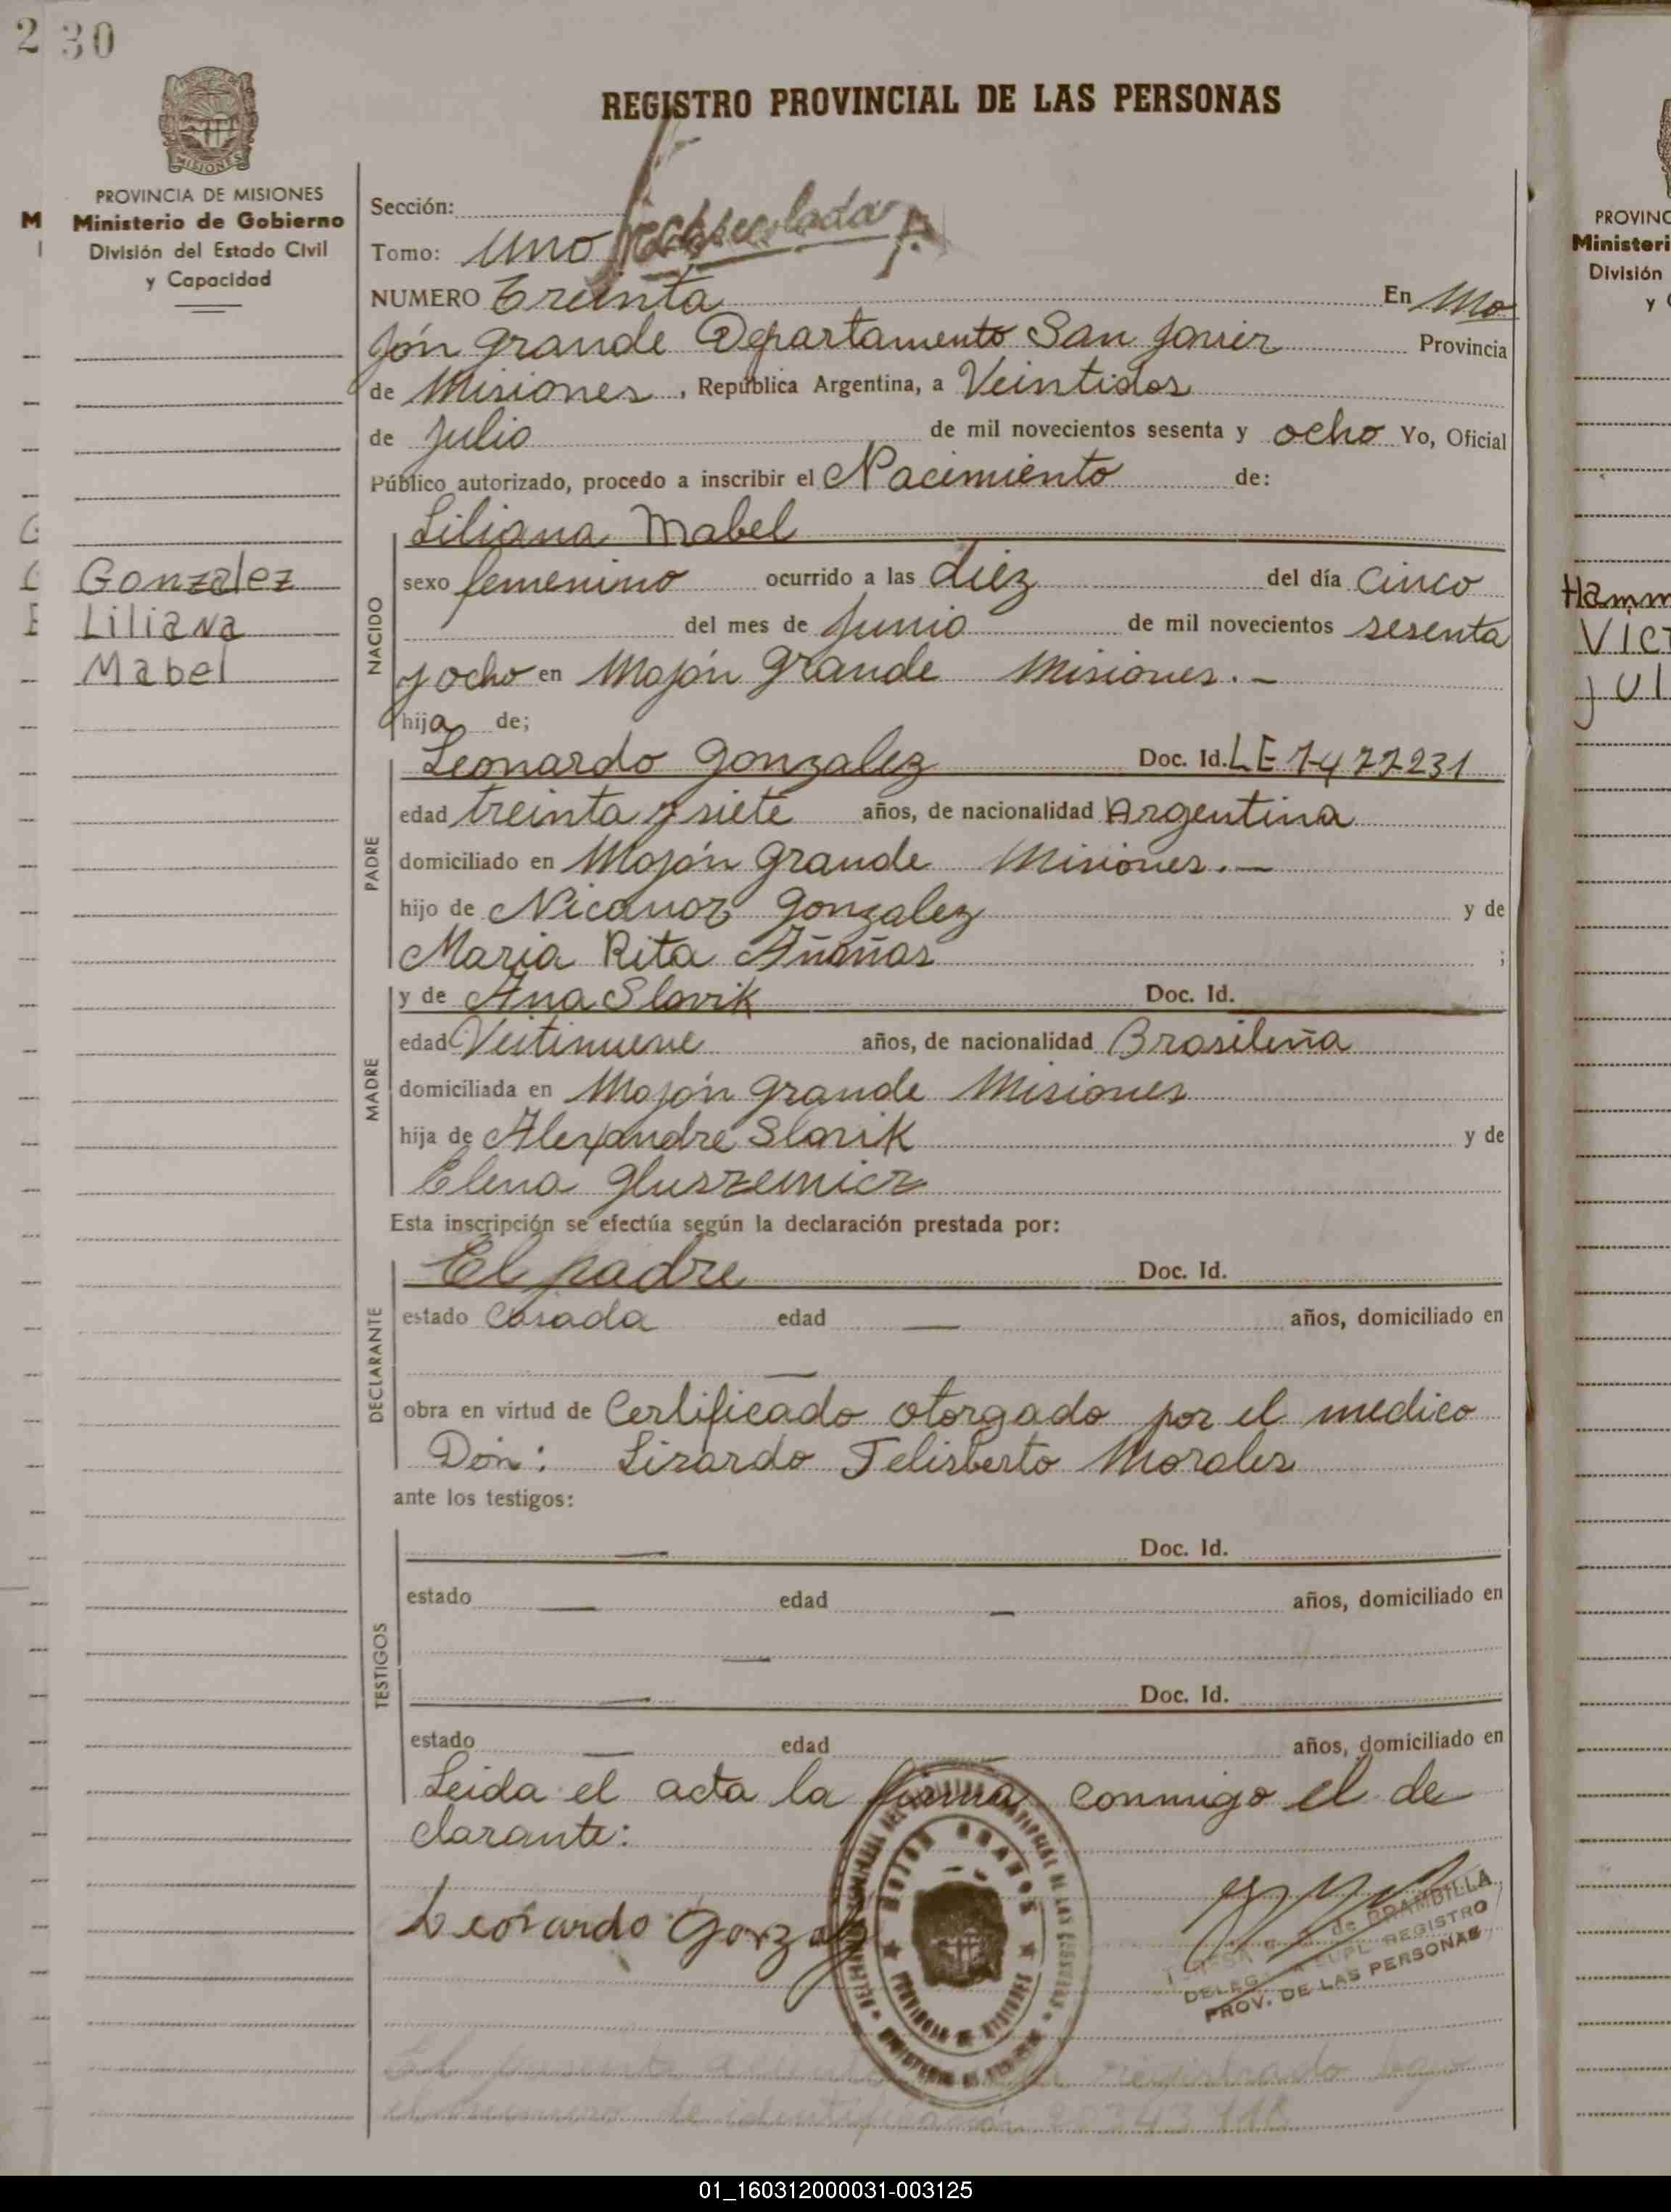 2 30
REGISTRO PROVINCIAL DE LAS PERSONAS
MISIONES
PROVINCIA DE MISIONES
Ministerio de Gobierno
División del Estado Civil
y Capacidad
Gonzalez
Liliana
Mabel
Sección:
Tomo: Uno
NUMERO Treinta En Mo
jón grande Departamento San Javier Provincia
de Misiones, República Argentina, a Veintidos
de Julio de mil novecientos sesenta y ocho Yo, Oficial
Público autorizado, procedo a inscribir el Nacimiento de:
NACIDO
Liliana Mabel
sexo femenino ocurrido a las diez del día cinco
del mes de Junio de mil novecientos sesenta
y ocho en Mojón grande Misiones.-
hija de;
PADRE
Leonardo Gonzalez Doc. Id. LE 7477231
edad treinta y siete años, de nacionalidad Argentina
domiciliado en Mojón grande Misiones.-
hijo de Nicanor Gonzalez y de
Maria Rita Añañas ;
MADRE
y de Ana Slavik Doc. Id.
edad años, de nacionalidad Brasileña
domiciliada en Mojón grande Misiones
hija de Alexandre Slavik y de
Elena
Esta inscripción se efectúa según la declaración prestada por:
DECLARANTE
El padre Doc. Id.
estado Casada edad — años, domiciliado en
—
obra en virtud de Certificado otorgado por el medico
Don: Lisardo Felisberto Morales
ante los testigos:
TESTIGOS
— Doc. Id.
estado — edad — años, domiciliado en
—
— Doc. Id.
estado — edad — años, domiciliado en
Leida el acta la firma conmigo el de
clarante:
Leonardo Gonzalez
de BRAMBILLA
SUPL. REGISTRO
PROV. DE LAS PERSONAS
registrado bajo
el numero de identificación
PROVINC
Ministeri
División
y
Hamm
Vict
Jul
01_160312000031-003125